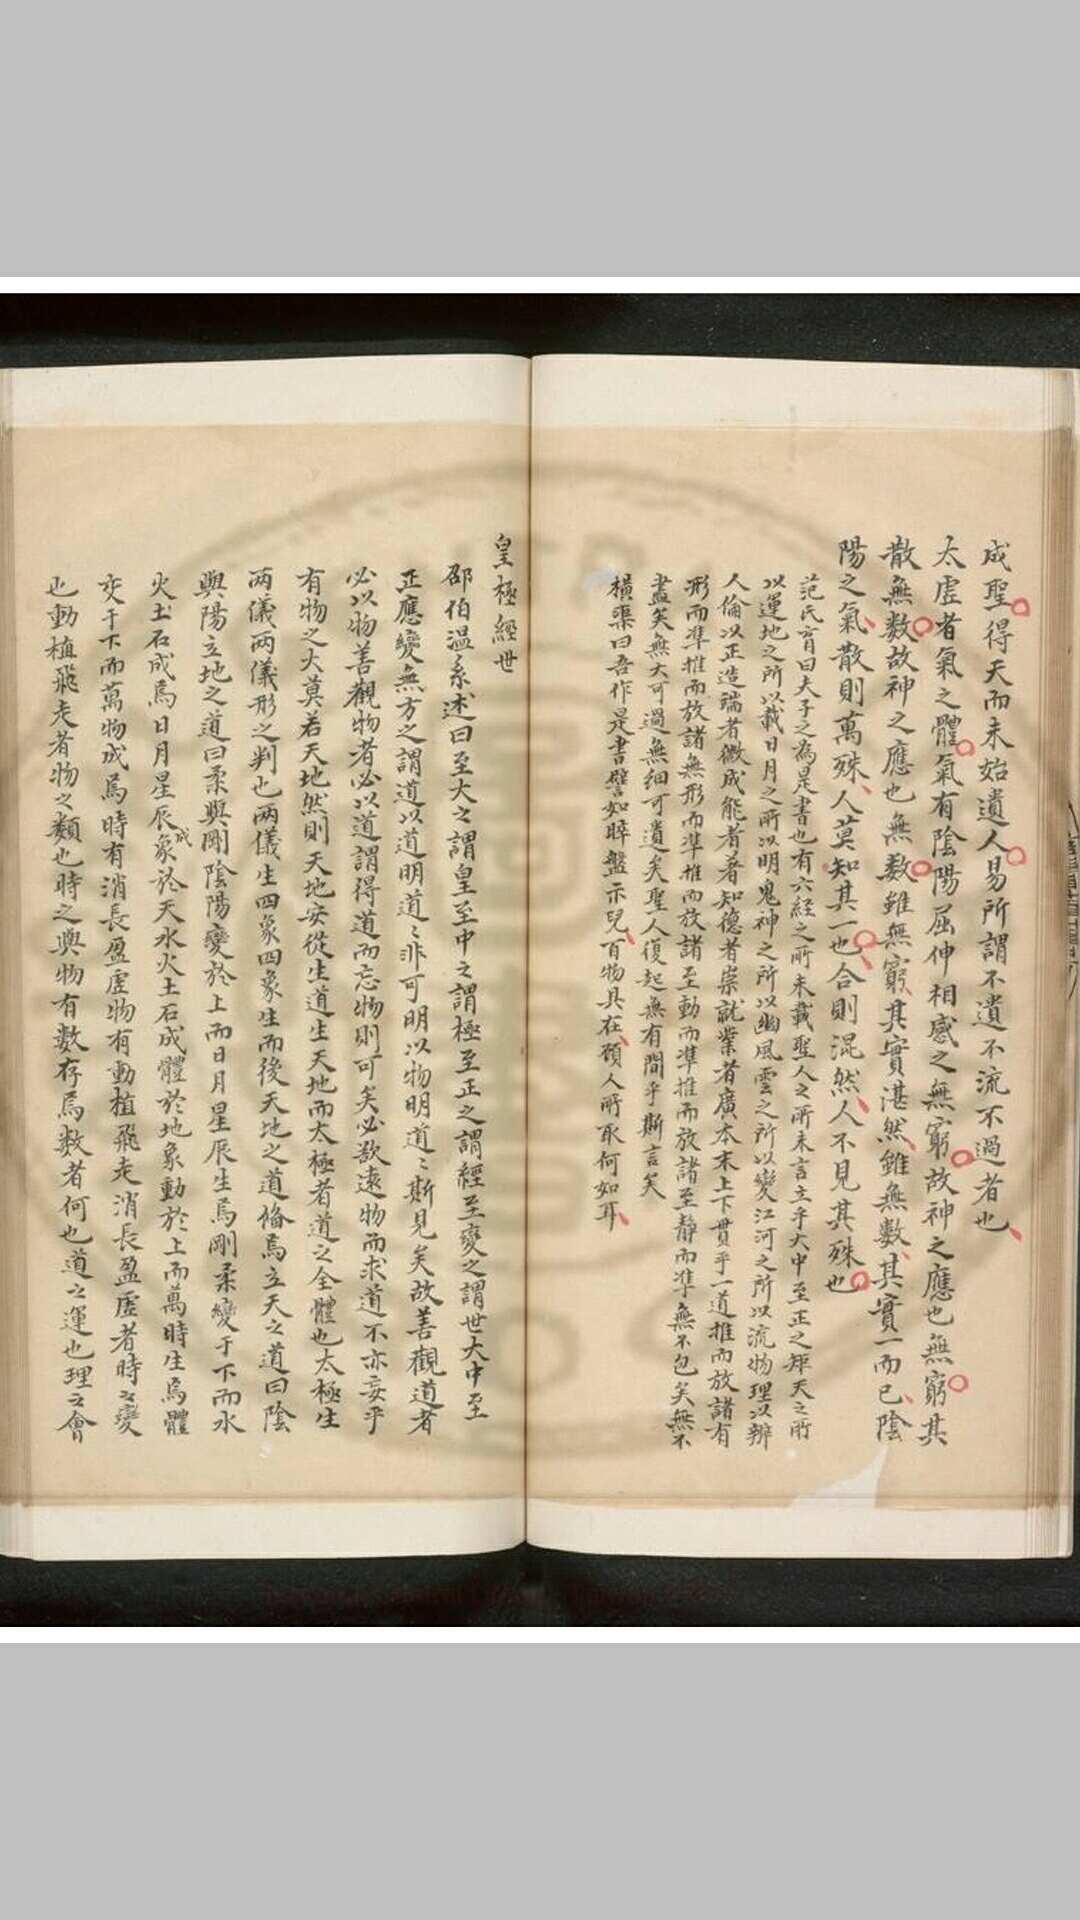 成聖得天而未始遺人易所謂不遺不流不過者也
太虛者氣之體氣有陰陽屈伸相感之無窮故神之應也無窮其
散無數故神之應也無數雖無窮其實湛然雖無數其實一而已陰
陽之氣散則萬殊人莫知其一也合則混然人不見其殊也
范氏育曰夫子之為是書也有六經之所未載聖人之所未言立乎大中至正之矩天之所
以運地之所以載日月之所以明鬼神之所以幽風雲之所以變江河之所以流物理以辨
人倫以正造端者微成能者著知德者崇就業者廣本末上下貫乎一道推而放諸有
形而準推而放諸無形而準推而放諸至動而準推而放諸至靜而準無不包矣無不
盡矣無大可過無細可遺矣聖人復起無有間乎斯言矣
橫渠曰吾作是書譬如晬盤示兒百物具在顧人所取何如耳
皇極經世
邵伯温系述曰至大之謂皇至中之謂極至正之謂經至變之謂世大中至
正應變無方之謂道以道明道〻非可明以物明道〻斯見矣故善觀道者
必以物善觀物者必以道謂得道而忘物則可矣必欲遠物而求道不亦妄乎
有物之大莫若天地然則天地安從生道生天地而太極者道之全體也太極生
两儀两儀形之判也两儀生四象四象生而後天地之道俻焉立天之道曰陰
與陽立地之道曰柔與剛陰陽變於上而日月星辰生焉剛柔變于下而水
火土石成焉日月星辰成象於天水火土石成體於地象動於上而萬時生焉體
交于下而萬物成焉時有消長盈虛物有動植飛走消長盈虛者時之變
也動植飛走者物之類也時之與物有数存焉数者何也道之運也理之會